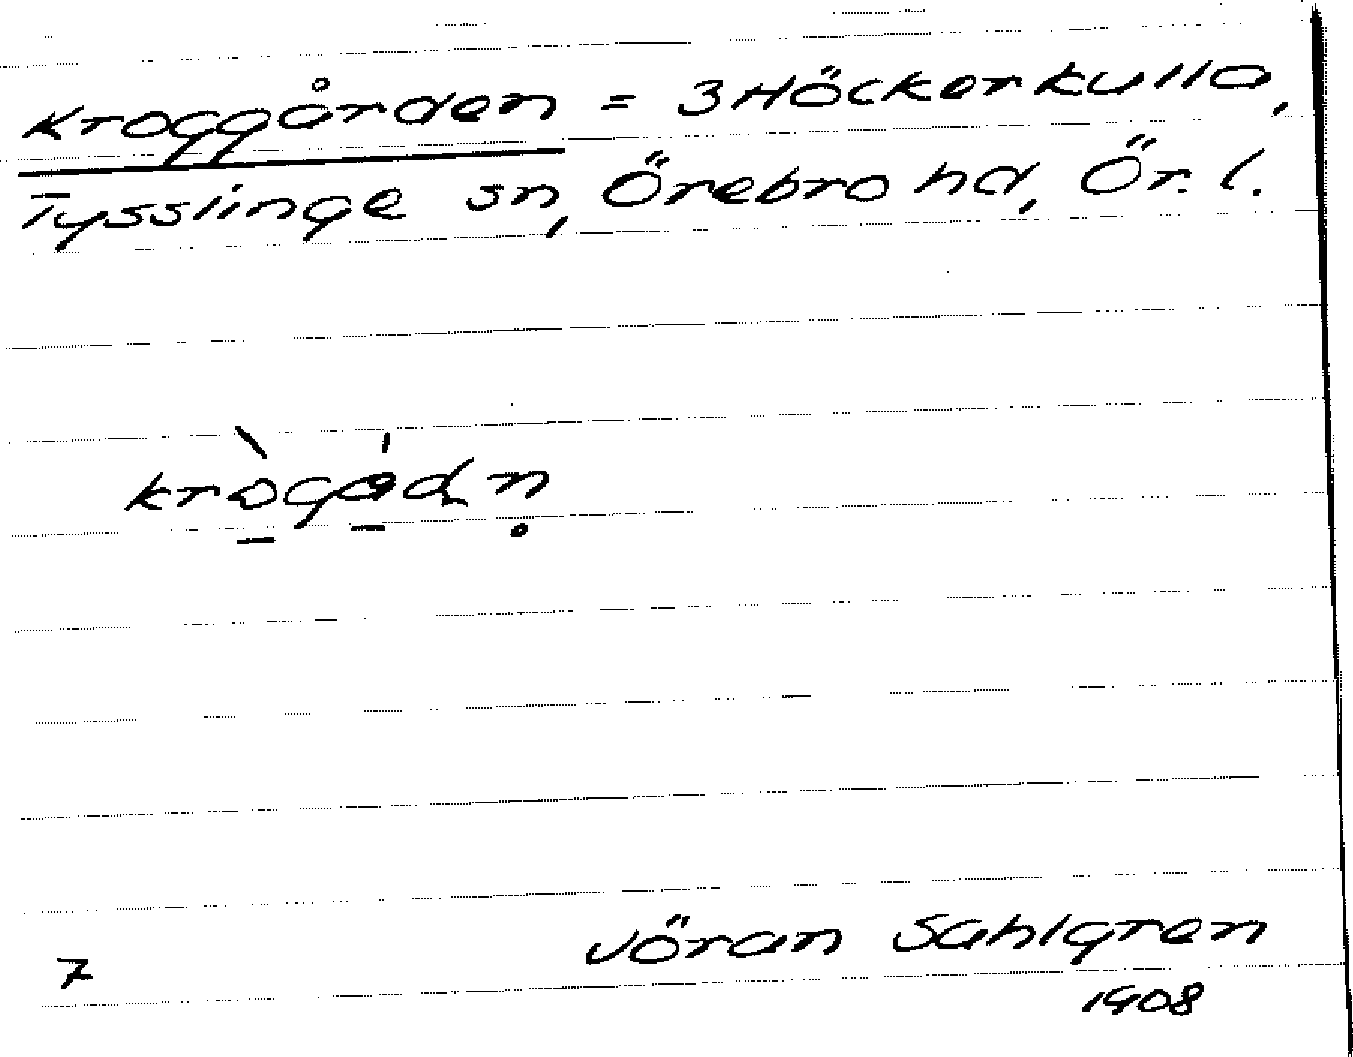 Kroggården = 3 Höckerkulla,
Tysslinge sn, Örebro hd, Ör. l.
krò̱gá̱dn̥
Jöran Sahlgren
7
1908